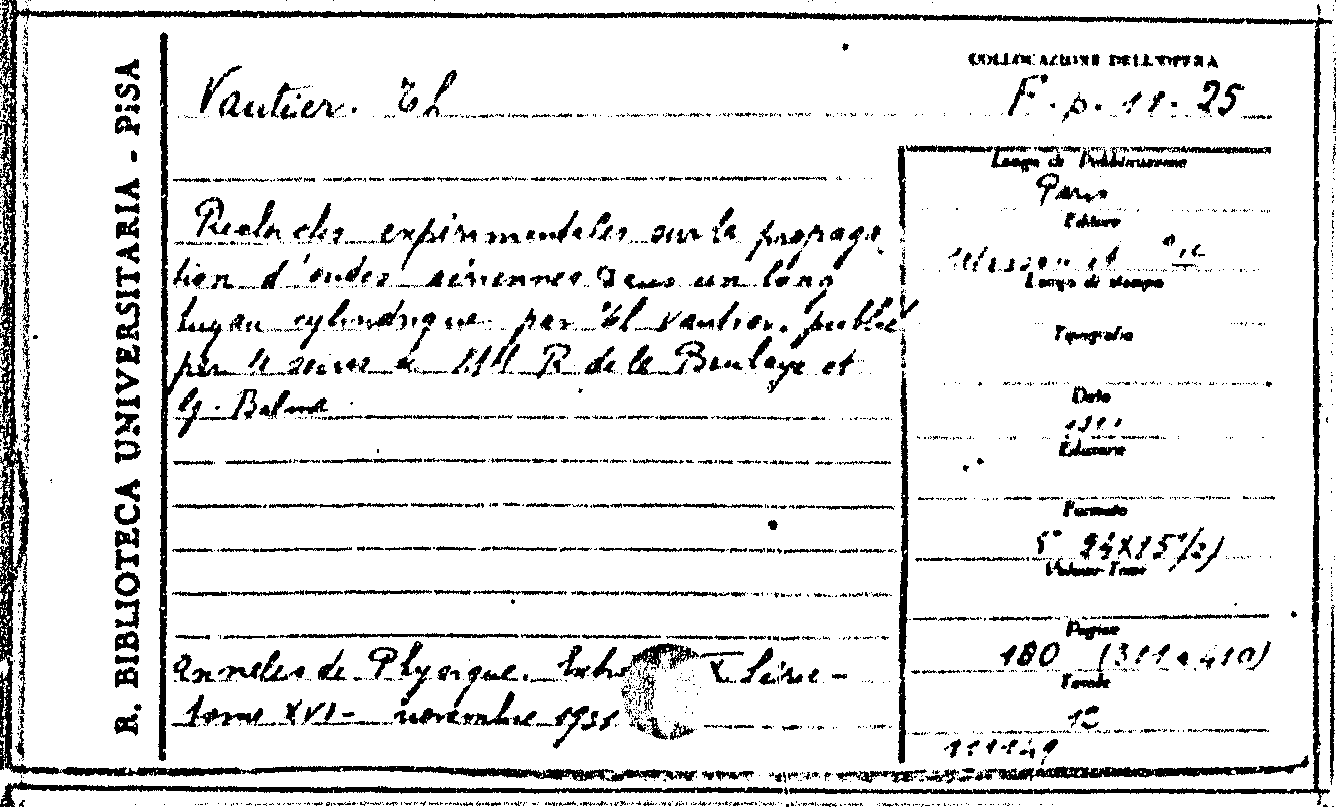 R. BIBLIOTECA UNIVERSITARIA - PISA
COLLOCAZIONE DELL'OPERA
Vautier. Th
F. p. 11. 25
Luogo di Pubblicazione
Paris
Editore
Masson et Cie
Luogo di stampa
Tipografia
Data
Edizione
Formato
8° 24X15 1/2)
Volume-Tomo
Pagine
100 (311 a 410)
Tavole
12
Recherches expérimentales sur la propaga
tion d'ondes aériennes dans un long
tuyau cylindrique par Th Vautier, publié
par MM R de la Boulaye et
G. Balme
Annales de Physique. X Série -
tome XVI - novembre 1931
111149